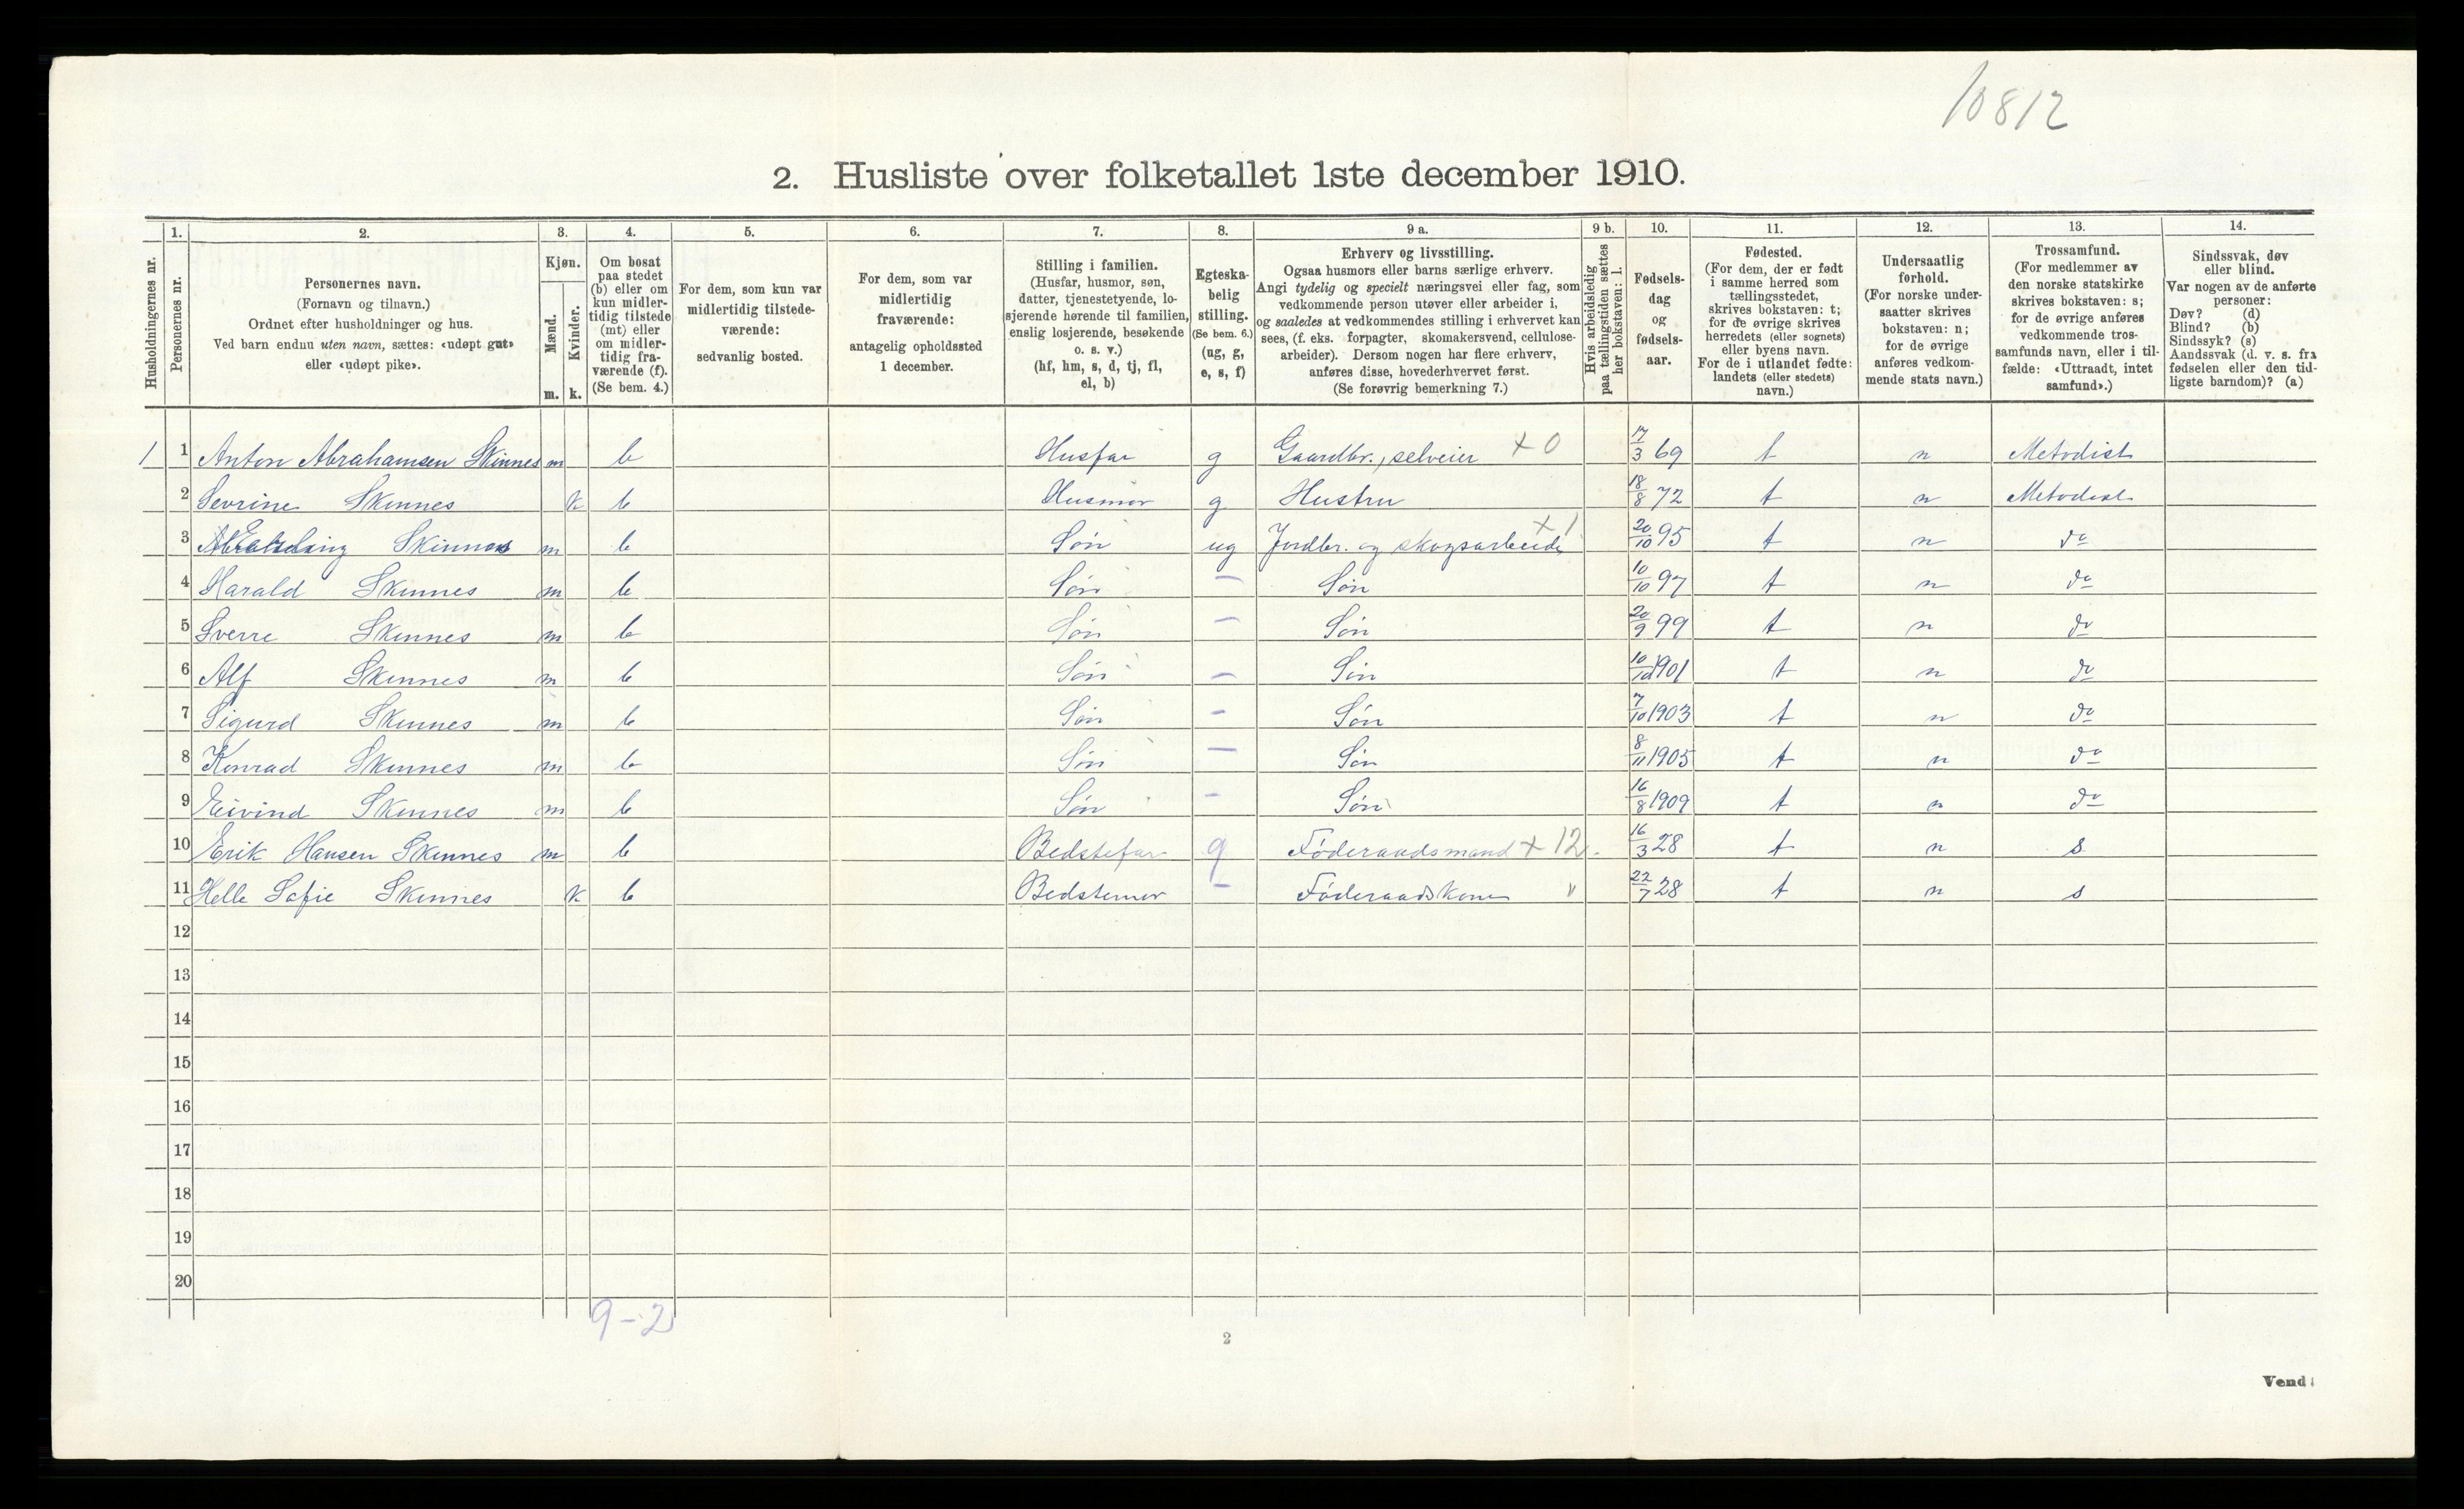 10812
2. Husliste over folketallet 1ste december 1910.
1. 2. 3. 4. 5. 6. 7. 8. 9 a. 9 b. 10. 11. 12. 13. 14.
Husholdningernes nr.
Personernes nr.
Personernes navn.
(Fornavn og tilnavn.)
Ordnet efter husholdninger og hus.
Ved barn endnu uten navn, sættes: «udøpt gut»
eller «udøpt pike».
Kjøn.
Mænd.
Kvinder.
m. k.
Om bosat
paa stedet
(b) eller om
kun midler-
tidig tilstede
(mt) eller
om midler-
tidig fra-
værende (f).
(Se bem. 4.)
For dem, som kun var
midlertidig tilstede-
værende:
sedvanlig bosted.
For dem, som var
midlertidig
fraværende:
antagelig opholdssted
1 december.
Stilling i familien.
(Husfar, husmor, søn,
datter, tjenestetyende, lo-
sjerende hørende til familien,
enslig losjerende, besøkende
o. s. v.)
(hf, hm, s, d, tj, fl,
el, b)
Egteska-
belig
stilling.
(Se bem. 6.)
(ug, g,
e, s, f)
Erhverv og livsstilling.
Ogsaa husmors eller barns særlige erhverv.
Angi tydelig og specielt næringsvei eller fag, som
vedkommende person utøver eller arbeider i,
og saaledes at vedkommendes stilling i erhvervet kan
sees, (f. eks. forpagter, skomakersvend, cellulose-
arbeider). Dersom nogen har flere erhverv,
anføres disse, hovederhvervet først.
(Se forøvrig bemerkning 7.)
Hvis arbeidsledig
paa tællingstiden sættes
her bokstaven: l.
Fødsels-
dag
og
fødsels-
aar.
Fødested.
(For dem, der er født
i samme herred som
tællingsstedet,
skrives bokstaven: t;
for de øvrige skrives
herredets (eller sognets)
eller byens navn.
For de i utlandet fødte:
landets (eller stedets)
navn.)
Undersaatlig
forhold.
(For norske under-
saatter skrives
bokstaven: n;
for de øvrige
anføres vedkom-
mende stats navn.)
Trossamfund.
(For medlemmer av
den norske statskirke
skrives bokstaven: s;
for de øvrige anføres
vedkommende tros-
samfunds navn, eller i til-
fælde: «Uttraadt, intet
samfund».)
Sindssvak, døv
eller blind.
Var nogen av de anførte
personer:
Døv? (d)
Blind? (b)
Sindssyk? (s)
Aandssvak (d. v. s. fra
fødselen eller den tid-
ligste barndom)? (a)
1 1 Anton Abrahamsen Skinnes m b Husfar g Gaardbr., selveier + 0 17/3 69 t n Metodist
2 Sevrine Skinnes k b Husmor g Hustru 18/8 72 t n Metodist
3 Skinnes m b Søn ug Jordbr. og skogsarbeide + 1 20/10 95 t n do
4 Harald Skinnes m b Søn — Søn 10/10 97 t n do
5 Sverre Skinnes m b Søn — Søn 20/9 99 t n do
6 Alf Skinnes m b Søn — Søn 10/10 1901 t n do
7 Sigurd Skinnes m b Søn — Søn 7/10 1903 t n do
8 Konrad Skinnes m b Søn — Søn 8/11 1905 t n do
9 Eivind Skinnes m b Søn — Søn 16/8 1909 t n do
10 Erik Hansen Skinnes m b Bedstefar g Føderaadsmand + 12. 16/3 28 t n s
11 Helle Sofie Skinnes k b Bedstemor — Føderaadskone " 22/7 28 t n s
12
13
14
15
16
17
18
19
20
9 - 2
2
Vend!